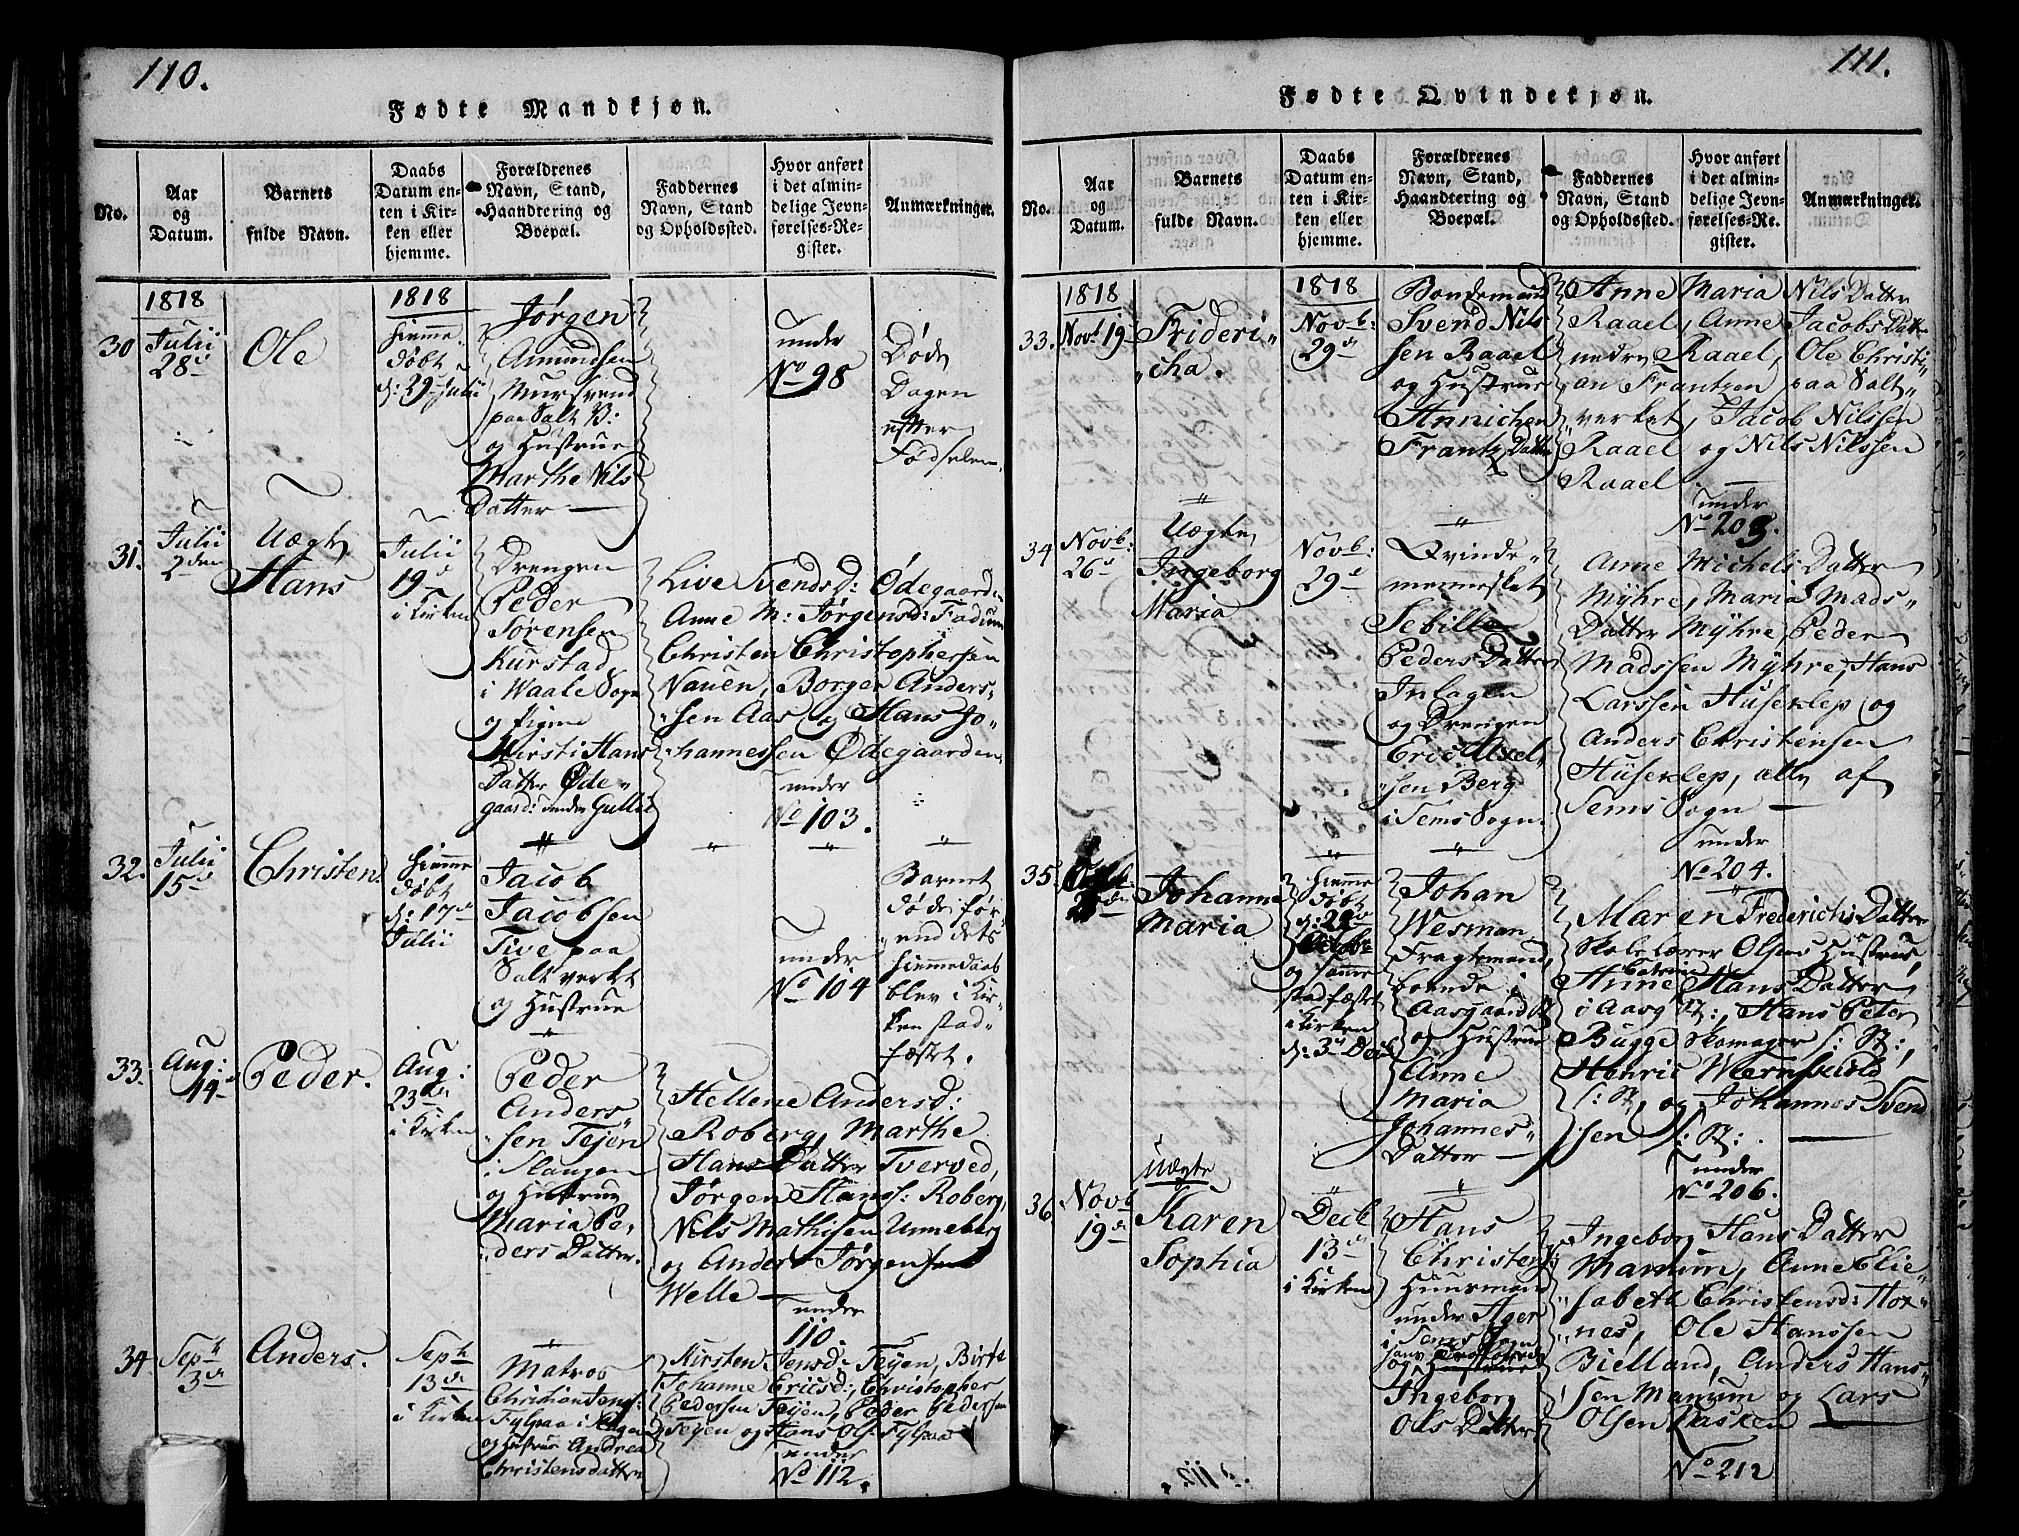 110.
Fødte Mandkjøn.
No.
Aar
og
Datum.
Barnets
fulde Navn.
Daabs
Datum en-
ten i Kir-
ken eller
hjemme.
Forældrenes
Navn, Stand,
Haandtering og
Boepæl.
Faddernes
Navn, Stand
og Opholdssted.
Hvor anført
i det almin-
delige Jevn-
førelses-Re-
gister.
Anmærkninger.
1818
30
Julii
28
Ole
1818
hiemme
døbt
d: 29 Julii
Jørgen
Amundsen
Mursvend
paa Salt V:
og Hustrue
Marthe Nils
Datter
under
No 98
Døde
Dagen
efter
Fødselen
31.
Julii
2den
Uægte
Hans
Julii
19
i Kirken
Drengen
Peder
Sørensen
Kurstad
i Waale Sogn
og Pigen
Kirsti Hans
Datter Øde"
gaard: under Gulli
Live Svendsd: Ødegaarden
Anne M: Jørgensd: Fadum
Christen Christophersen
Nauen, Borger Anders,
"sen Aas og Hans Jo"
"hannessen Ødegaarden
under
No 103.
32.
Julii
15
Christen
hiemme
døbt
d: 17
Julii
Jacob
Jacobsen
Tive paa
Salt verket
og Hustrue
under
No 104
Barnet
døde før
end dets
hiemmedaab
blev i Kir"
ken stad"
fæstet.
33.
Aug:
14
Peder.
Aug:
23
i Kirken
Peder
Anders
"sen Tejen
i Slangen
og Hustrue
Maria Pe"
"ders Datter.
Hellene Andersd:
Roberg, Marthe
Hans Datter Tverved,
Jørgen Hanss: Roberg,
Nils Mathisen Unneberg
og Anders Jørgensen
Welle
under
110.
34
Sept
3
Anders.
Sept
13
i Kirken
Matros
Christian Jens:
Fylpaa i
og Hustrue Andrea
Christensdatter
Kirsten Jensd: Tejen, Birte
Johanne Ericsd:, Christopher
Pedersen Tejen, Peder Pedersen
Tejen og Hans Ols: Fylpaa
under
No 112.
111.
Fødte Qvindekjøn.
No.
Aar
og
Datum.
Barnets
fulde Navn.
Daabs
Datum en-
ten i Kir-
ken eller
hjemme.
Forældrenes
Navn, Stand,
Haandtering og
Boepæl.
Faddernes
Navn, Stand
og Opholdssted.
Hvor anført
i det almin-
delige Jevn-
førelses-Re-
gister.
Anmærkninger.
1818
33.
Novb 19
Frideri"
"cha.
1818
Novb:
29
Bondemand
Svend Nils
sen Raael
og Hustrue
Annichen
Frantz Datter
Anne Maria Nils Datter
Raael, Anne Jacobs Dat"
nedre Raael, Ole Christi"
an Frantzen paa Salt"
"verket, Jacob Nilssen
Raael og Nils Nilssen
Raael
under
No 203.
34
Novb:
26
Uægte
Ingeborg
Maria
Novb:
29
Qvinde"
mennesket
Sebille
Peders Datter
Inlagen
og Drengen
Eric Axel"
"sen Berg
i Sems Sogn.
Anne Michels Datter
Myhre, Maria Mads"
Datter Myhre, Peder
Madssen Myhre, Hans
Larssen Huseklep og
Anders Christensen
Huseklep, alle af
Sems Sogn
under
No 204.
35.
Johanne
Maria
hiemme
døbt
d: 22
Octobr
og
stadfæstet
i Kirken
d: 3 Decb
Johan
Wesman
Fragtemand,
boende i
Aasgaard St
og Hustrue
Anne
Maria
Johannes"
Datter
Maren Frederichs Datter
Skolelærer Olsens Hustrue,
Catrine
Anne Hans Datter
i Aasg St:, Hans Peter
Bugge Skomager s: St:,
Henric Wernskiold
s: St, og Johannes Svend
"sen s: St:.
under
No 206.
36.
Novb
19
uægte
Karen
Sophia
Decb
13
i Kirken
Hans
Christens:
Huusmand
under Ager
i Sems Sogn
og Hustrue
Ingeborg
Ols Datter
Ingeborg Hans Datter
Manum, Anne Elie"
sabeth Christensd: Hox"
"nes, Ole Hanssen
Bielland, Anders Hans"
sen Manum og Lars
Olsen Dasken
No 212